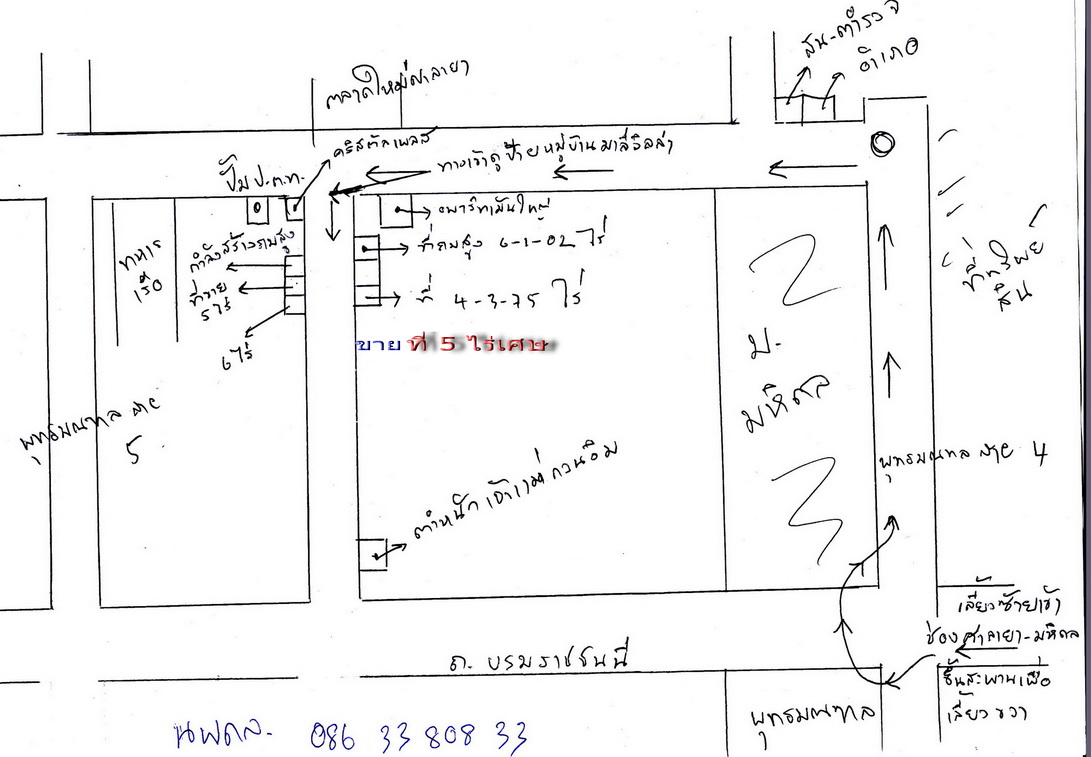 สน.ตำรวจ
อำเภอ
ตลาดใหม่ศาลายา
คริสตัลเพลส
ทางเข้าดูป้ายหมู่บ้านมาลีวิลล่า
ปั๊ม ป.ต.ท.
อพาร์ทเม้นใหญ่
ที่ถมสูง 6-1-02 ไร่
ที่ 4-3-75 ไร่
ขาย ที่ 5 ไร่เศษ
ทหาร
เรือ
กำลังสร้างถมสูง
ที่ขาย
5 ไร่
6 ไร่
ที่ทรัพย์
สิน
ม.
มหิดล
พุทธมณฑล สาย
5
พุทธมณฑล สาย 4
ตำหนัก เจ้าแม่ กวนอิม
เลี้ยวซ้ายเข้า
ช่องศาลายา-มหิดล
ขึ้นสะพานเพื่อ
เลี้ยว ขวา
ถ. บรมราชชนนี
พุทธมณฑล
นพดล. 086 33 808 33